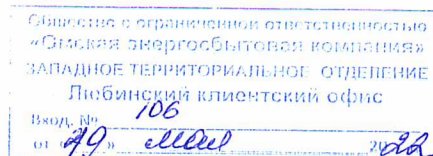 Общество с ограниченной ответственностью
«Омская энергосбытовая компания»
ЗАПАДНОЕ ТЕРРИТОРИАЛЬНОЕ ОТДЕЛЕНИЕ
Любинский клиентский офис
Вход. № 106
от «19» мая 2022